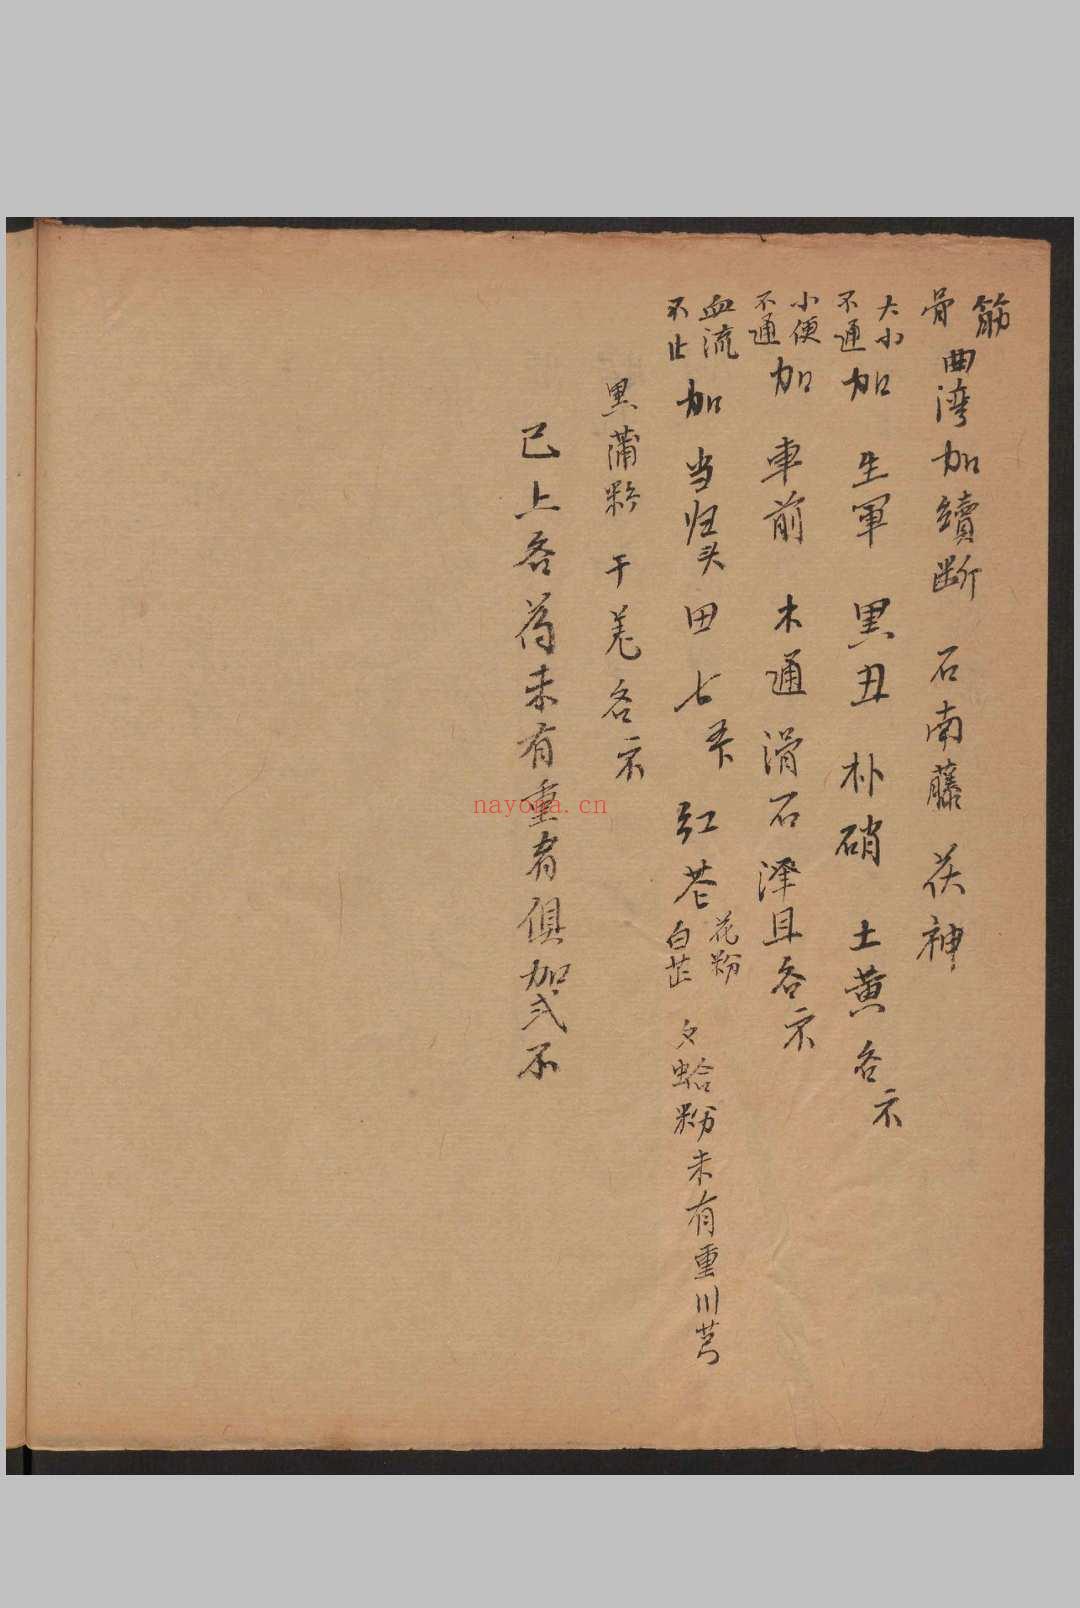 筋骨曲湾加續断 石南藤 茯神
大小不通加 生軍 黑丑 朴硝 土黄各
小便不通加 車前 木通 滑石 泽且各
血流不止加 当归头 田七 红 花粉 白芷 蛤粉未有重川芎
黑蒲粉 干羌各
已上各 未有重者俱加式不
nayona.cn